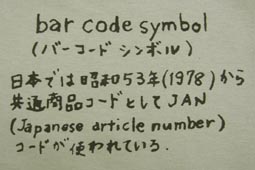 bar code symbol
(バーコードシンボル)
日本では昭和53年(1978)から
共通商品コードとしてJAN
(Japanese article number)
コードが使われている.